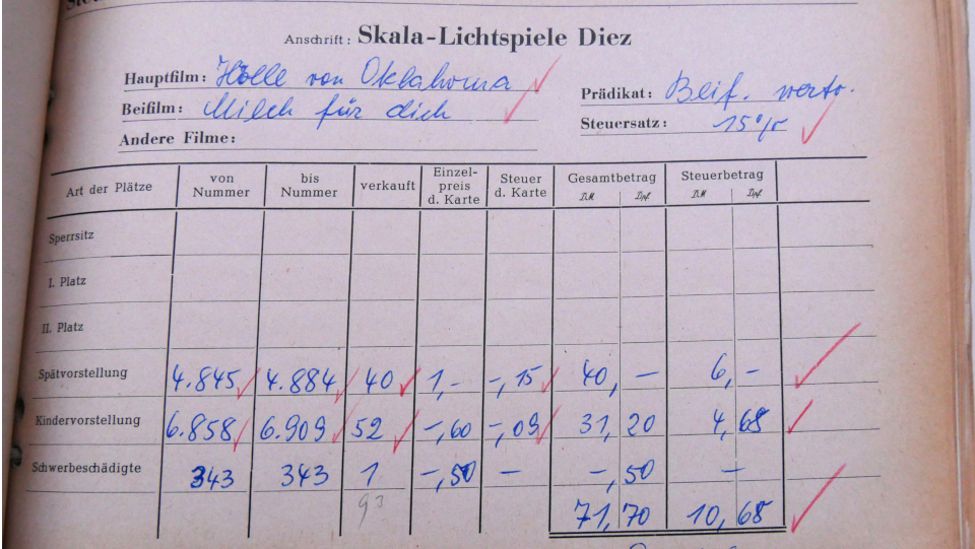 Anschrift: Skala-Lichtspiele Diez
Hauptfilm: Hölle von Oklahoma
Beifilm: Milch für dich
Prädikat: Beif. wertv.
Steuersatz: 15%
Andere Filme:
Art der Plätze von Nummer bis Nummer verkauft Einzel-preis d. Karte Steuer d. Karte Gesamtbetrag DM Dpf Steuerbetrag DM Dpf
Sperrsitz
I. Platz
II. Platz
Spätvorstellung 4.845 4.884 40 1,- -,15 40,- 6,-
Kindervorstellung 6.858 6.909 52 -,60 -,09 31,20 4,68
Schwerbeschädigte 343 343 1 -,50 - -,50 -
93 71,70 10,68